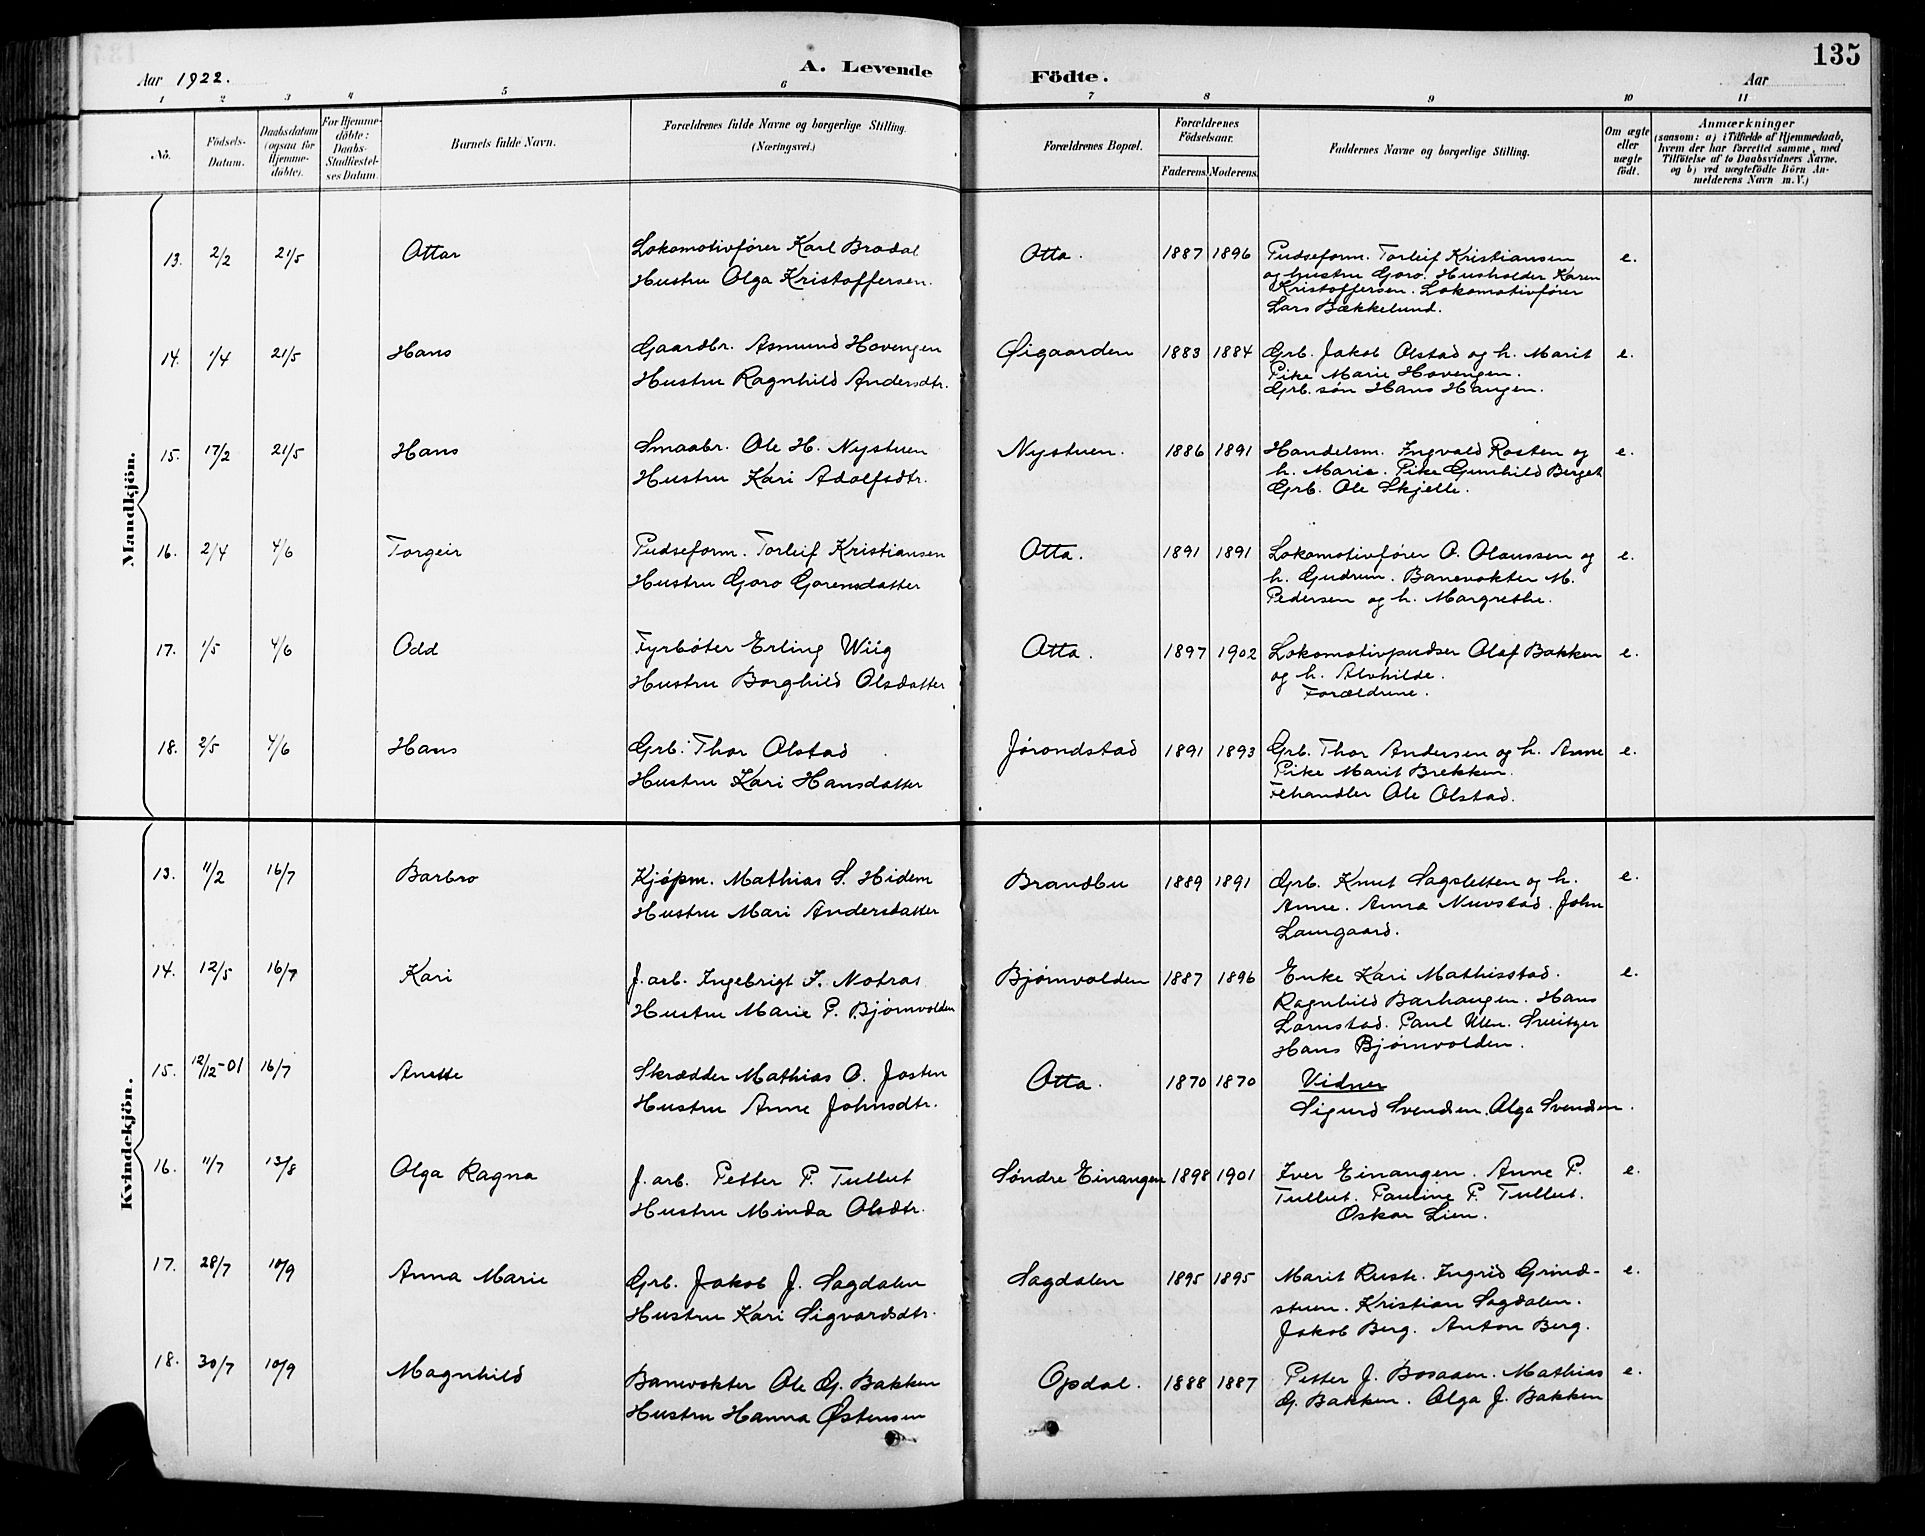 Aar 1922.
A. Levende
Födte.
Aar
135
1 2 3 4 5 6 7 8 9 10 11
No.
Födsels-
Datum.
Daabsdatum
(ogsaa for
Hjemme-
döbte).
For Hjemme-
döbte:
Daabs-
Stadfæstel-
ses Datum.
Barnets fulde Navn.
Forældrenes fulde Navne og borgerlige Stilling.
(Næringsvei.)
Forældrenes Bopæl.
Forældrenes
Födselsaar.
Faderens. Moderens.
Faddernes Navne og borgerlige Stilling.
Om ægte
eller
uægte
født.
Anmærkninger
(saasom: a) i Tilfælde af Hjemmedaab,
hvem der har forrettet samme, med
Tilföielse af to Daabsvidners Navne,
og b) ved uægtefödte Börn An-
melderens Navn m. V.)
Mandkjön.
13. 2/2 21/5 Ottar
Lokomotivfører Karl Bradal
Hustru Olga Kristoffersen.
Otta. 1887 1896
Pudseform. Torleif Kristiansen
og hustru Goro. Husholder Karen
Kristoffersen. Lokomotivfører
Lars Bækkelund.
e.
14. 1/4 21/5 Hans
Gaardbr. Asmund Hovengen
Hustru Ragnhild Andersdtr.
Øigaarden 1883 1884
Grb. Jakob Olstad og h. Marit
Pike Marie Hovengen.
Grb. søn Hans Haugen.
e.
15. 17/2 21/5 Hans
Smaabr. Ole H. Nystuen
Hustru Kari Adolfsdtr.
Nystuen. 1886 1891
Handelsm. Ingvald Rosten og
h. Marie. Pike Gunhild Berget
Grb. Ole Skjelle.
e.
16. 2/4 4/6 Torgeir
Pudseform. Torleif Kristiansen
Hustru Goro Gorensdatter
Otta. 1891 1891
Lokomotivfører O. Olaussen og
h. Gudrun. Banevokter M.
Pedersen og h. Margrethe.
e.
17. 1/5 4/6 Odd
Fyrbøter Erling Wiig
Hustru Borghild Olsdatter
Otta. 1897 1902
Lokomotivpudser Olaf Bakken
og h. Alvhilde.
Forældrene.
e.
18. 2/5 4/6 Hans
Grb. Thor Olstad
Hustru Kari Hansdatter
Jørondstad 1891 1893
Grb. Thor Andersen og h. Anne
Pike Marit Brekken.
Fehandler Ole Olstad.
e.
Kvindekjön.
13. 11/2 16/7 Barbro
Kjøpm. Mathias S. Hidem
Hustru Mari Andersdatter
Brandbu 1889 1891
Grb. Knut Sagsletten og h.
Anne. Anna Nuvstad. John
Laurgaard.
e.
14. 12/5 16/7 Kari
J. arb. Ingebrigt I. Mofras
Hustru Marie P. Bjørnvolden
Bjørnvolden 1887 1896
Enke Kari Mathisstad.
Ragnhild Barhaugen. Hans
Larnstad. Paul Ulen. Sveitzer
Hans Bjørnvolden.
e.
15. 12/12-01 16/7 Anette
Skrædder Mathias O. Josten
Hustru Anne Johnsdtr.
Otta. 1870 1870
Vidner
Sigurd Svendsen. Olga Svendsen.
16. 11/7 13/8 Olga Ragna
J. arb. Petter P. Tullut
Hustru Minda Olsdtr.
Søndre Einangen 1898 1901
Iver Einangen. Anne P.
Tullut. Pauline P. Tullut.
Oskar Lien.
e.
17. 28/7 10/9 Anna Marie
Grb. Jakob J. Sagdalen
Hustru Kari Sigvardsdtr.
Sagdalen 1895 1895
Marit Ruste. Ingrid Grind-
stuen. Kristian Sagdalen.
Jakob Berg. Anton Berg.
e.
18. 30/7 10/9 Magnhild
Banevokter Ole G. Bakken
Hustru Hanna Østensen
Opdal. 1888 1887
Petter J. Bosaaen. Mathias
G. Bakken. Olga J. Bakken
e.